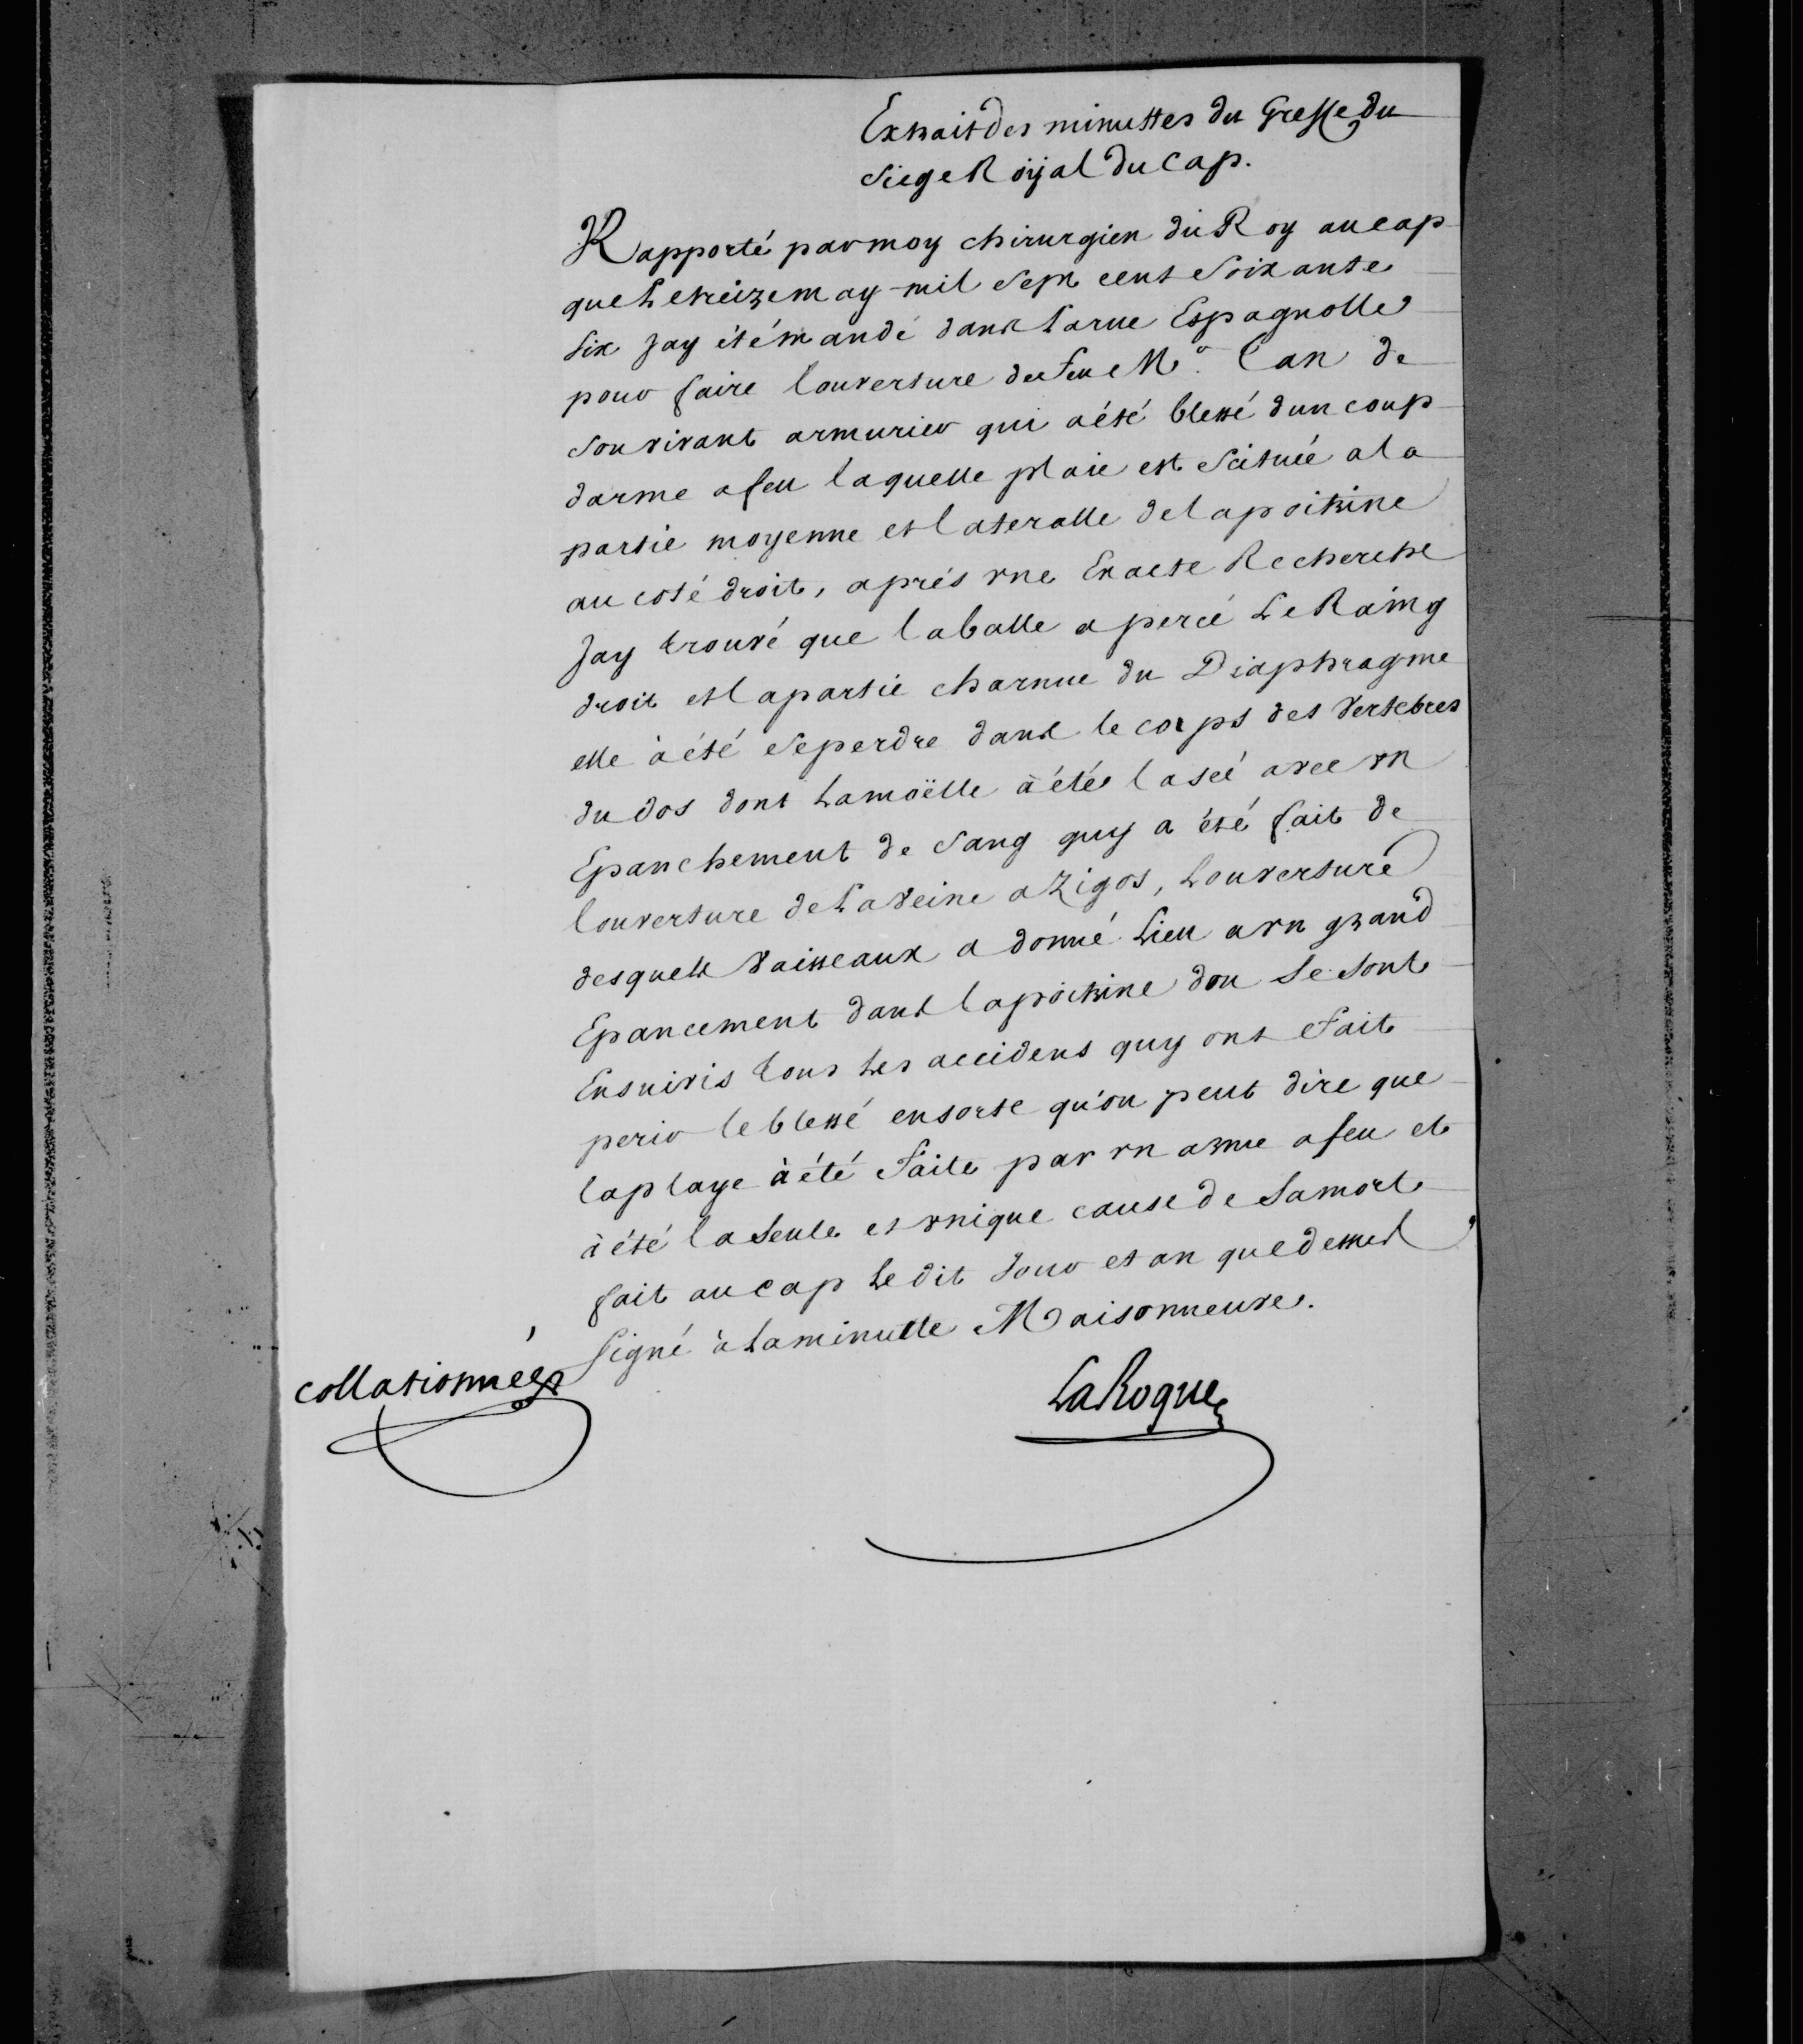 Extrait des minuttes du Greffe du
Siege Roÿal du Cap.
Rapporté par moy chirurgien du Roy au cap
que Le treize may mil Sept cent Soixante
Six Jay été mandé dans La rue Espagnolle
pour faire l'ouverture de feu Mr. Can de
Son vivant armurier qui a été blessé dun coup
darme a feu laquelle plaie est Scituée a la
partie moyenne et lateralle de la poitrine
au coté droit, aprés une Exacte Recherche
Jay trouvé que la balle a percé Le Raing
droit et la partie charnue du Diaphragme
elle à été Se perdre dans le corps des Vertebres
du dos dont La moëlle à été lasée avec un
Epanchement de Sang quy a été fait de
louverture de La Veine aZigos, Louverture
desquels Vaisseaux a donné Lieu a un grand
Epancement dans la poitrine dou Se Sont
Ensuivis tous Les accidens quy ont fait
perir le blessé ensorte qu'on peut dire que
la playe à été faite par un arme a feu et
à été la Seule et unique cause de Sa mort
fait au cap Le dit Jour et an que dessus
Signé à La minutte Maisonneuve.
collationnée
LaRoque